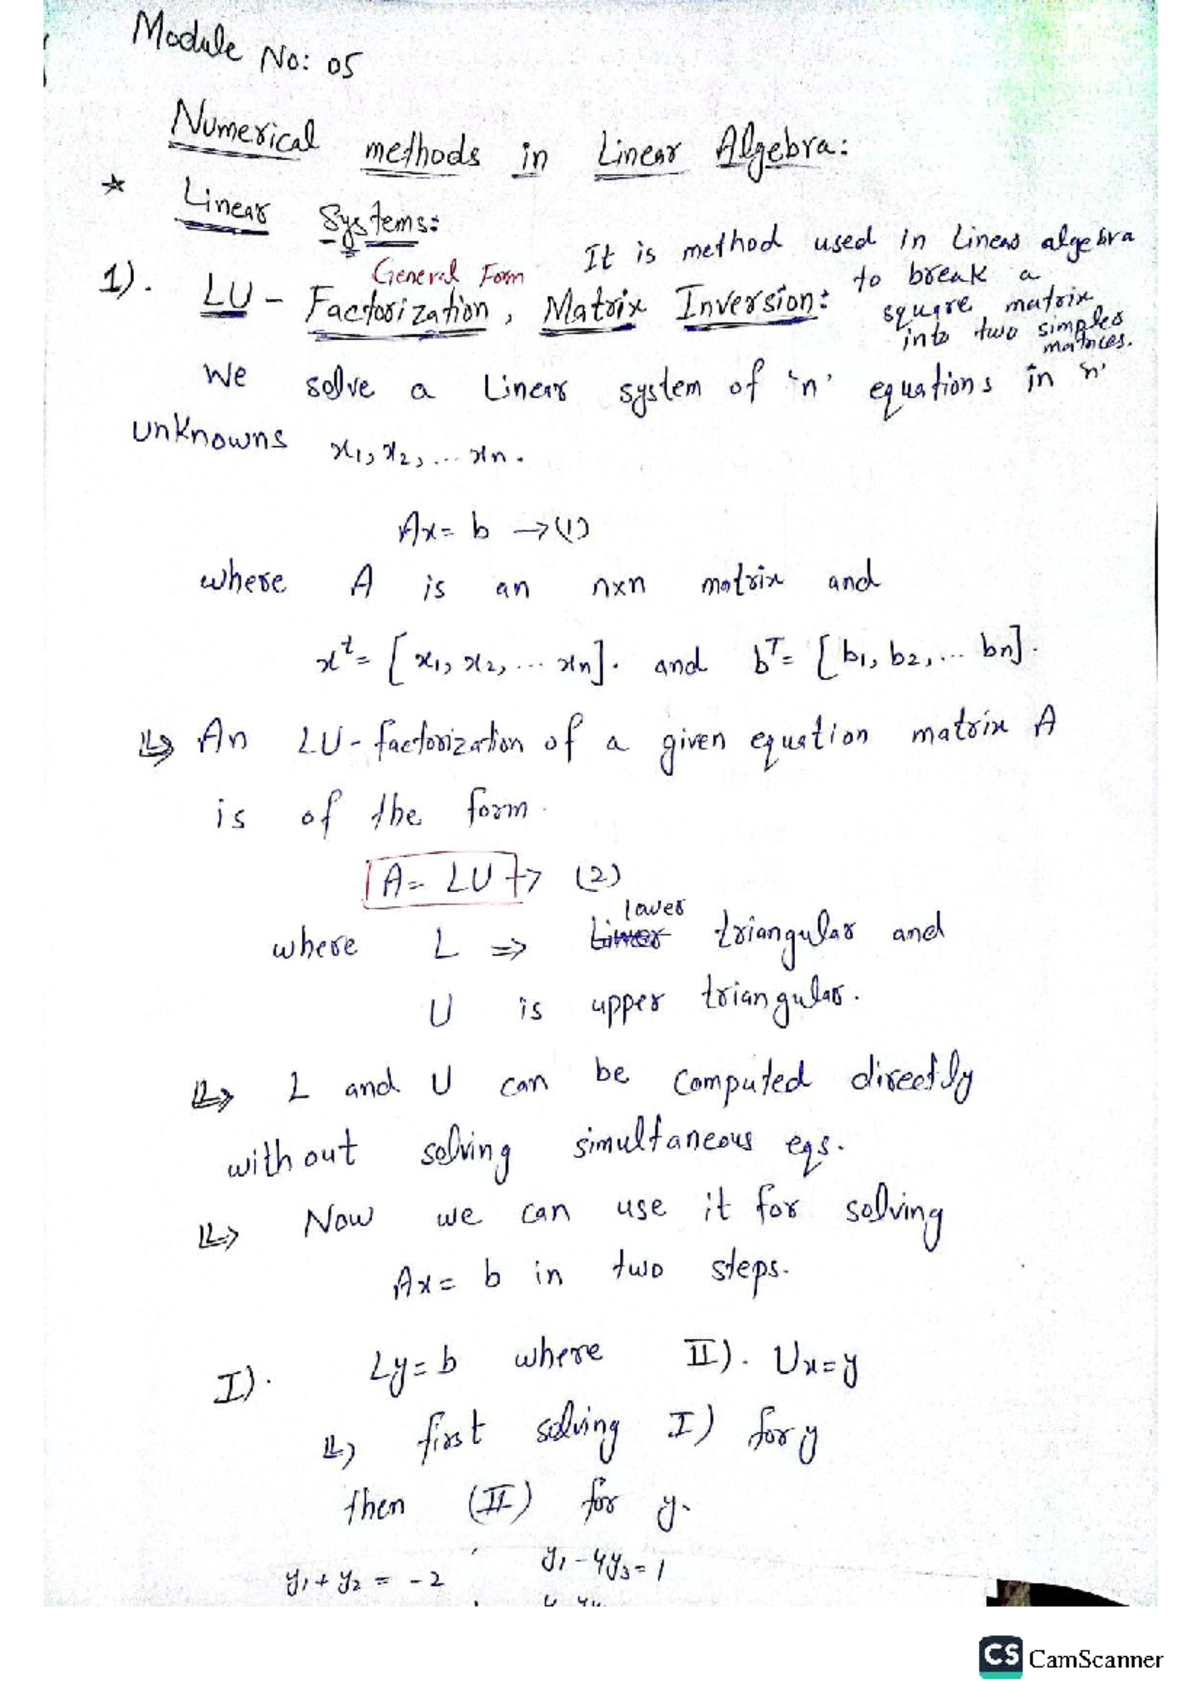 Module No: 05
Numerical methods in Linear Algebra:
* Linear Systems:
It is method used in Linear algebra
to break a
square matrix
into two simpler
matrices.
General Form
1). LU - Factorization, Matrix Inversion:
We solve a Linear system of 'n' equations in 'n'
unknowns x1, x2, ... xn.
Ax = b → (1)
where A is an nxn matrix and
x^t = [x1, x2, ... xn]. and b^T = [b1, b2, ... bn].
An LU - factorization of a given equation matrix A
is of the form.
A = LU → (2)
lower
where L ⇒ Linear triangular and
U is upper triangular.
L and U can be computed directly
without solving simultaneous eqs.
Now we can use it for solving
Ax = b in two steps.
I). Ly = b where II). Ux = y
first solving I) for y
then (II) for y.
y1 + y2 = -2 y1 - 4y3 = 1
CS CamScanner